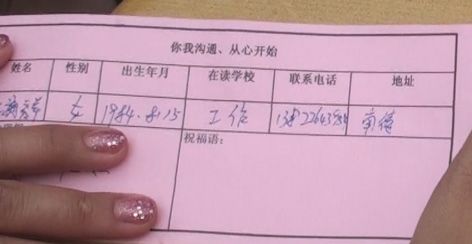 你我沟通、从心开始
姓名 性别 出生年月 在读学校 联系电话 地址
女 1984.8.15 工作
祝福语: